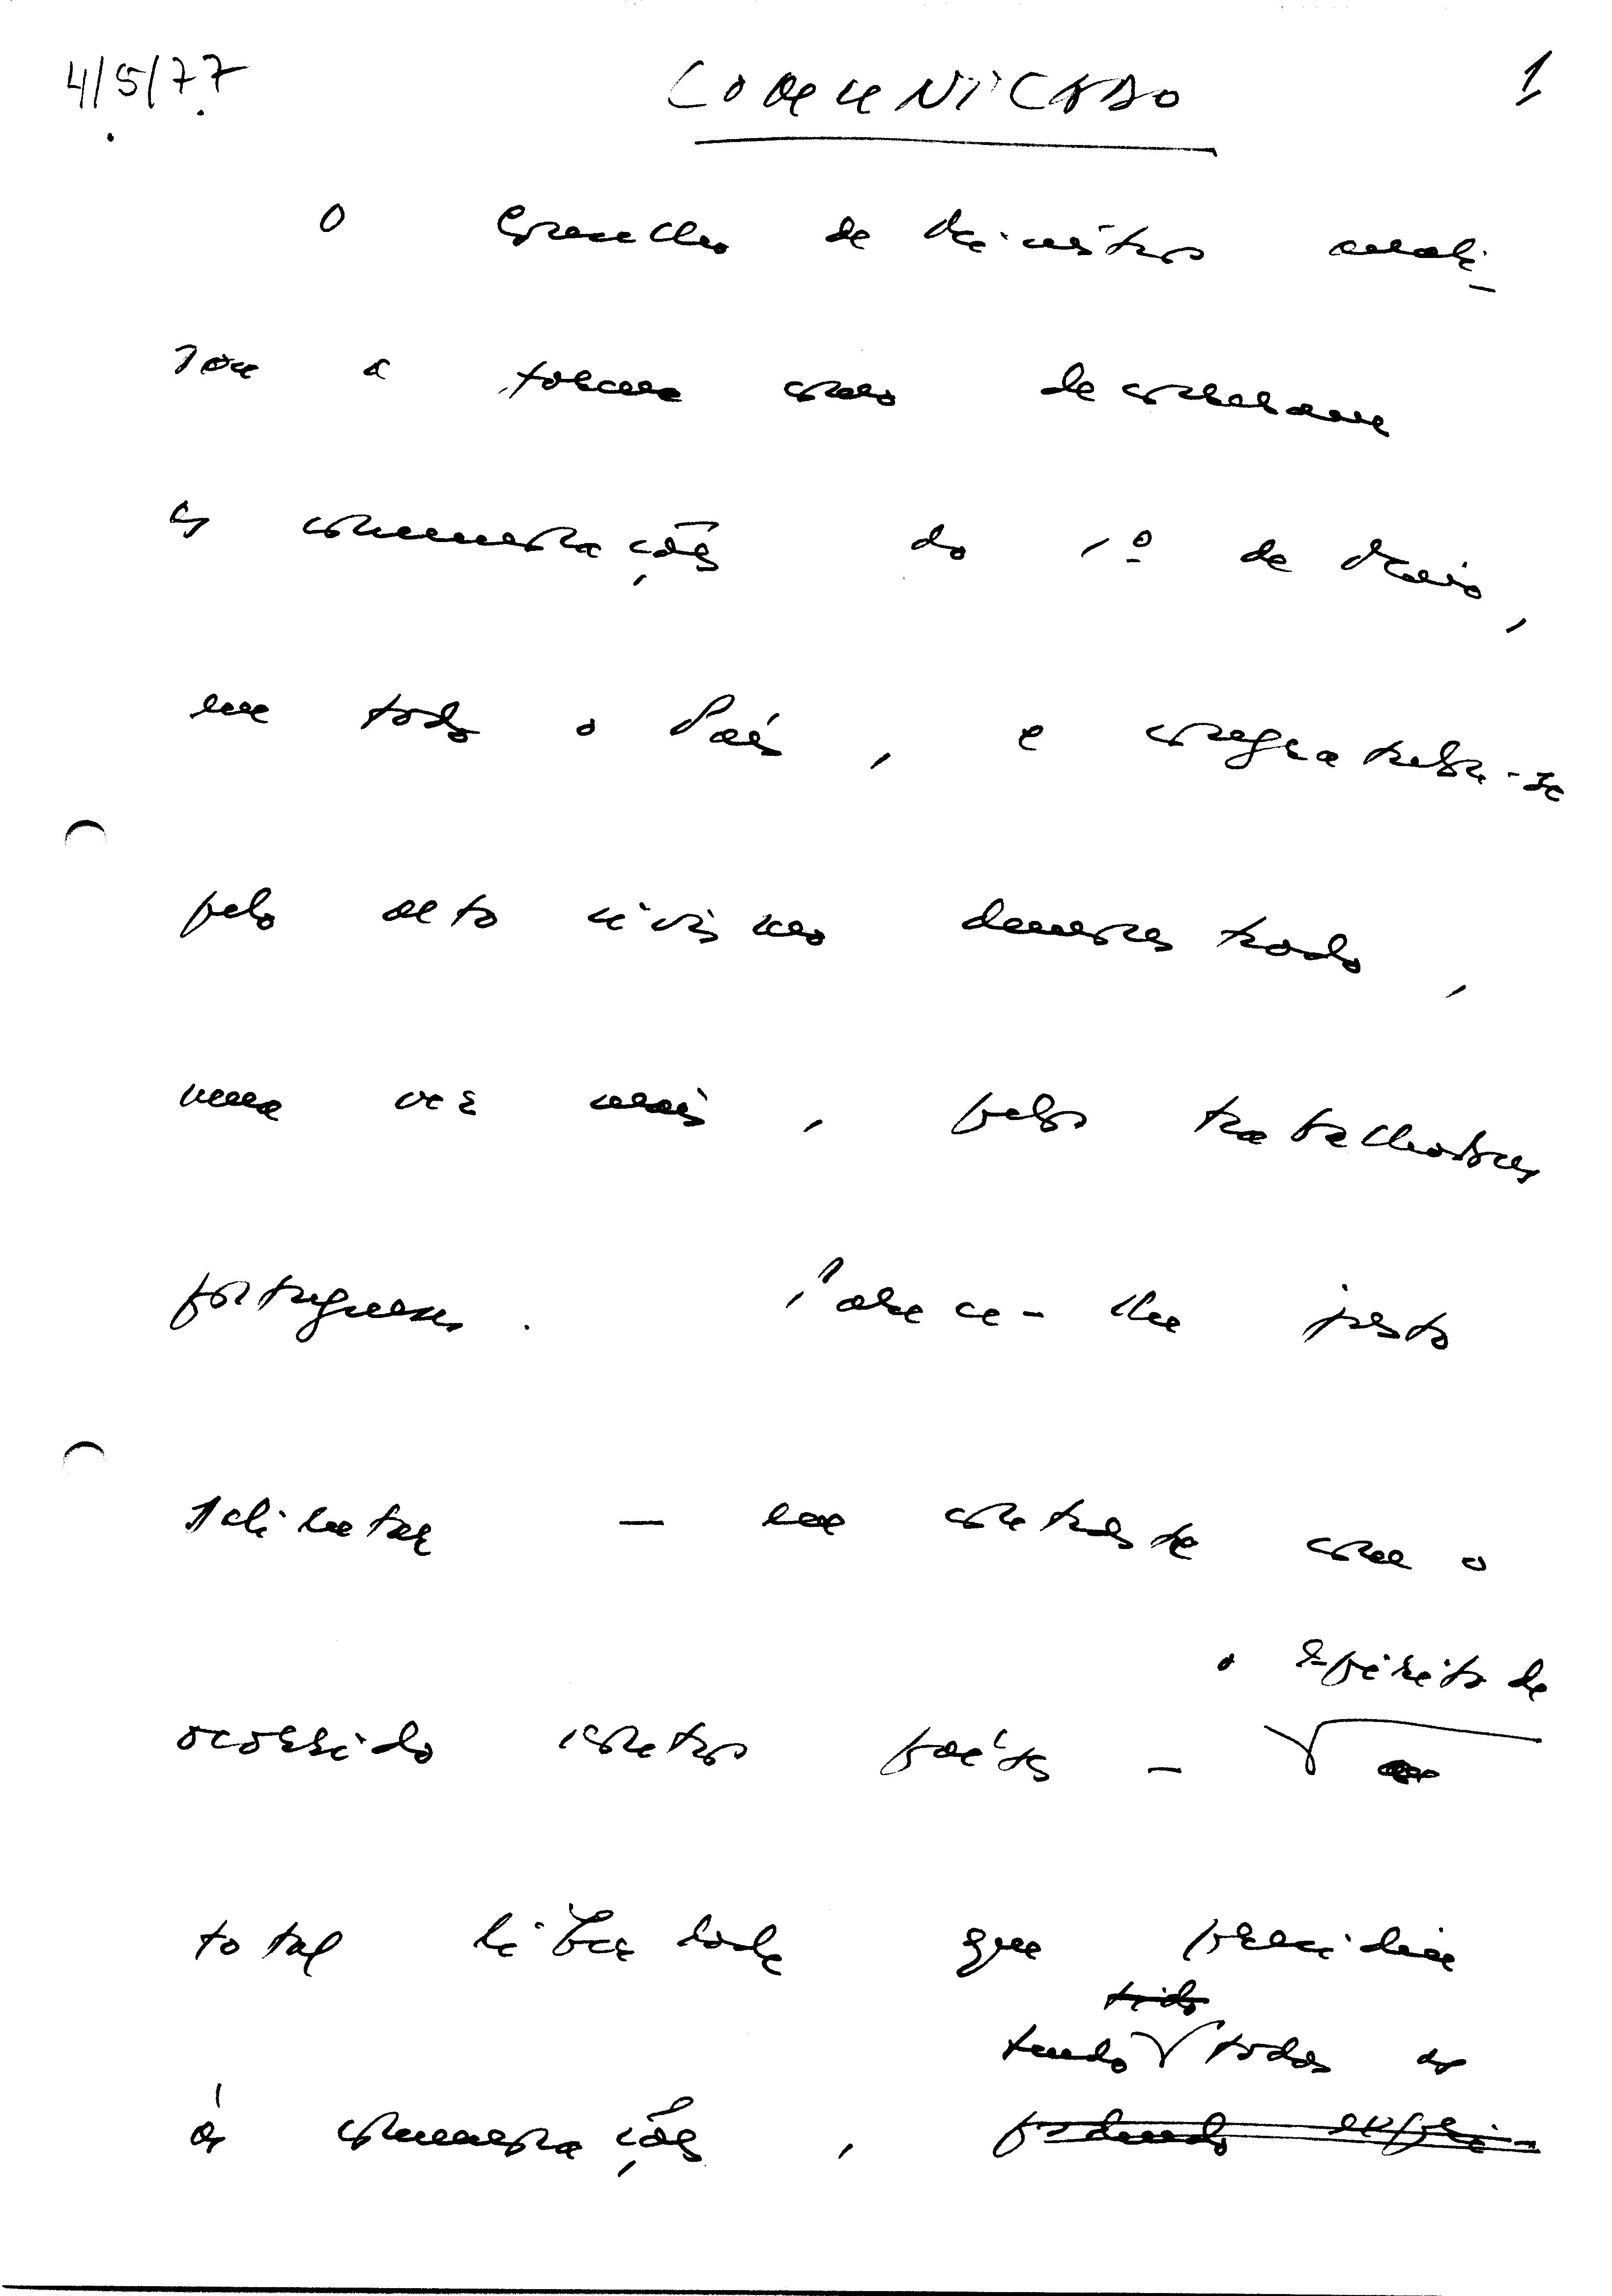 4/5/77 COMUNICADO 1
O Conselho de Ministros anali-
sou a forma como decorreram
as comemorações do 1º de Maio,
em todo o País, e congratula-se
pelo alto civismo demonstrado,
uma vez mais, pelos trabalhadores
portugueses. Parece-lhe justo
salientar – em contraste com o
o espírito de
ocorrido noutros países –
total liberdade que presidiu
tido
tendo todos os
às comemorações, podendo expri-